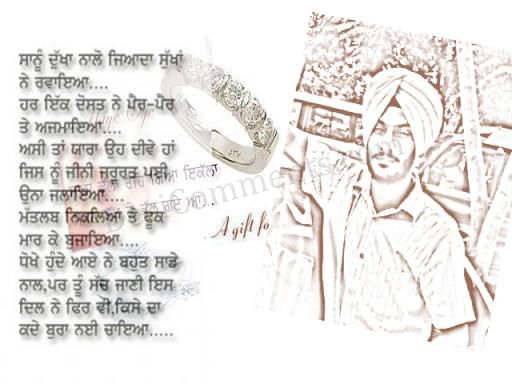 ਸਾਨੂੰ ਦੁੱਖਾ ਨਾਲੋ ਜਿਆਦਾ ਸੁੱਖਾਂ
ਨੇ ਰਵਾਇਆ....
ਹਰ ਇੱਕ ਦੋਸਤ ਨੇ ਪੈਰ-ਪੈਰ
ਤੇ ਅਜਮਾਇਆ....
ਅਸੀ ਤਾਂ ਯਾਰਾ ਉਹ ਦੀਵੇ ਹਾਂ
ਜਿਸ ਨੂੰ ਜੀਨੀ ਜਰੂਰਤ ਪਈ
ਉਨਾ ਜਲਾਇਆ....
ਮੱਤਲਬ ਨਿਕਲਿਆਂ ਤੇ ਫੂਕ
ਮਾਰ ਕੇ ਬੁਜਾਇਆ....
ਧੋਖੇ ਹੁੰਦੇ ਆਏ ਨੇ ਬਹੁਤ ਸਾਡੇ
ਨਾਲ,ਪਰ ਤੂੰ ਸੱਚ ਜਾਣੀ ਇਸ
ਦਿਲ ਨੇ ਫਿਰ ਵੀ,ਕਿਸੇ ਦਾ
ਕਦੇ ਬੁਰਾ ਨਈ ਚਾਇਆ.....
ਗਿਆ ਇਕੱਲਾ
A gift fo